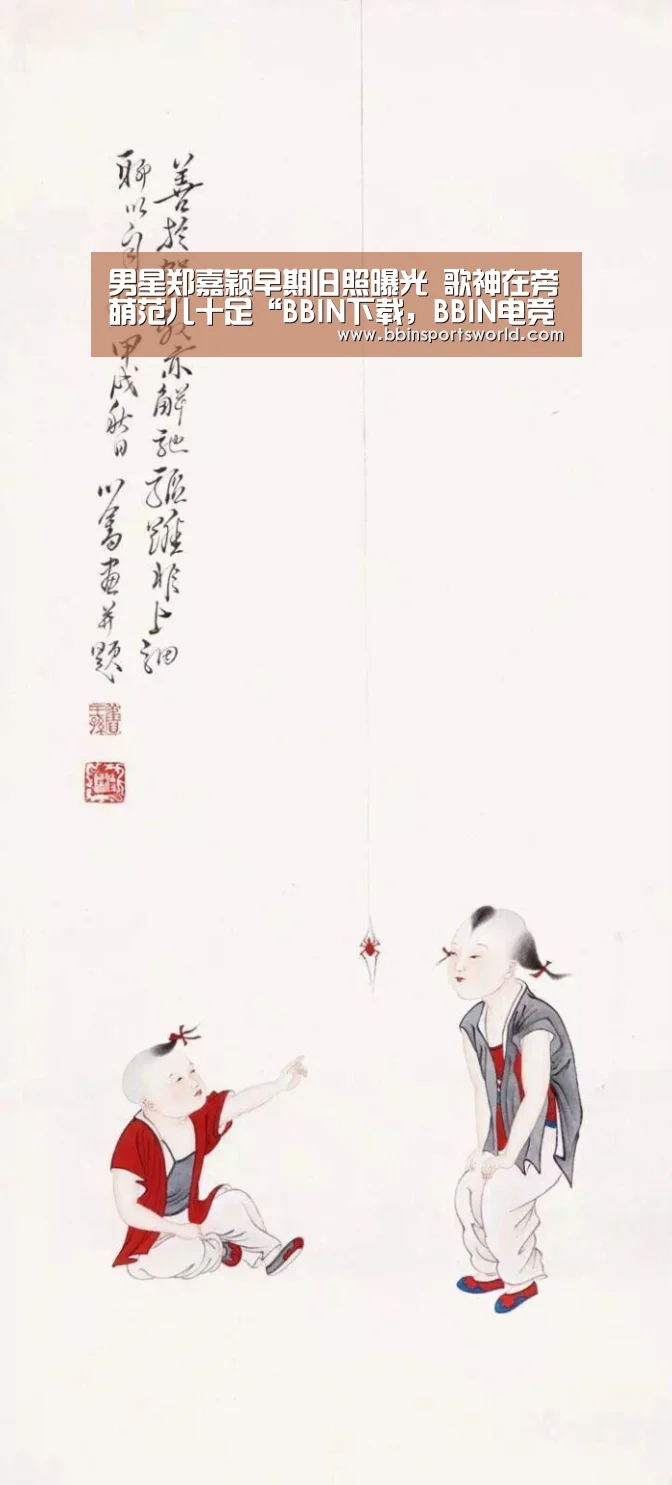 善於亦解馳驅雖非上駟
聊以自
甲戌秋日 心畬畫并題
男星郑嘉颖早期旧照曝光 歌神在旁
萌范儿十足“BBIN下载，BBIN电竞
www.bbinsportsworld.com